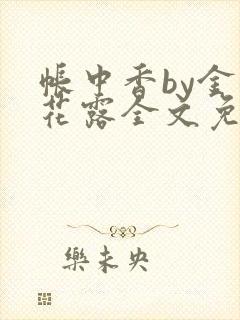 帐中香by金
花露全文免
乐未央